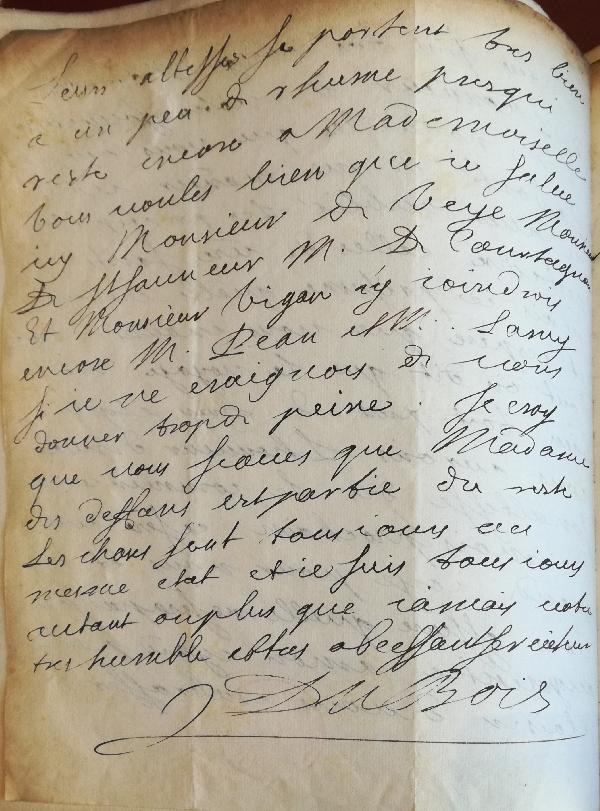 Leurs altesses se portent tres bien
a un peu de rhume presqui
reste encore a Mademoiselle
Vous voules bien que ie salue
icy Monsieur De Veye Monsieur
De st M. De Courtagnon
Et Monsieur Vigan iy ioindrois
encore M. Pean et M. Lamy
si ie ne craignois de vous
donner trop de peine. Je croy
que vous scaues que Madame
des deffans est partie du reste
Les choses sont tousiours au
mesme etat et ie suis tousiours
autant ou plus que iamais votre
tres humble et tres obeessant serviteur
DuBois